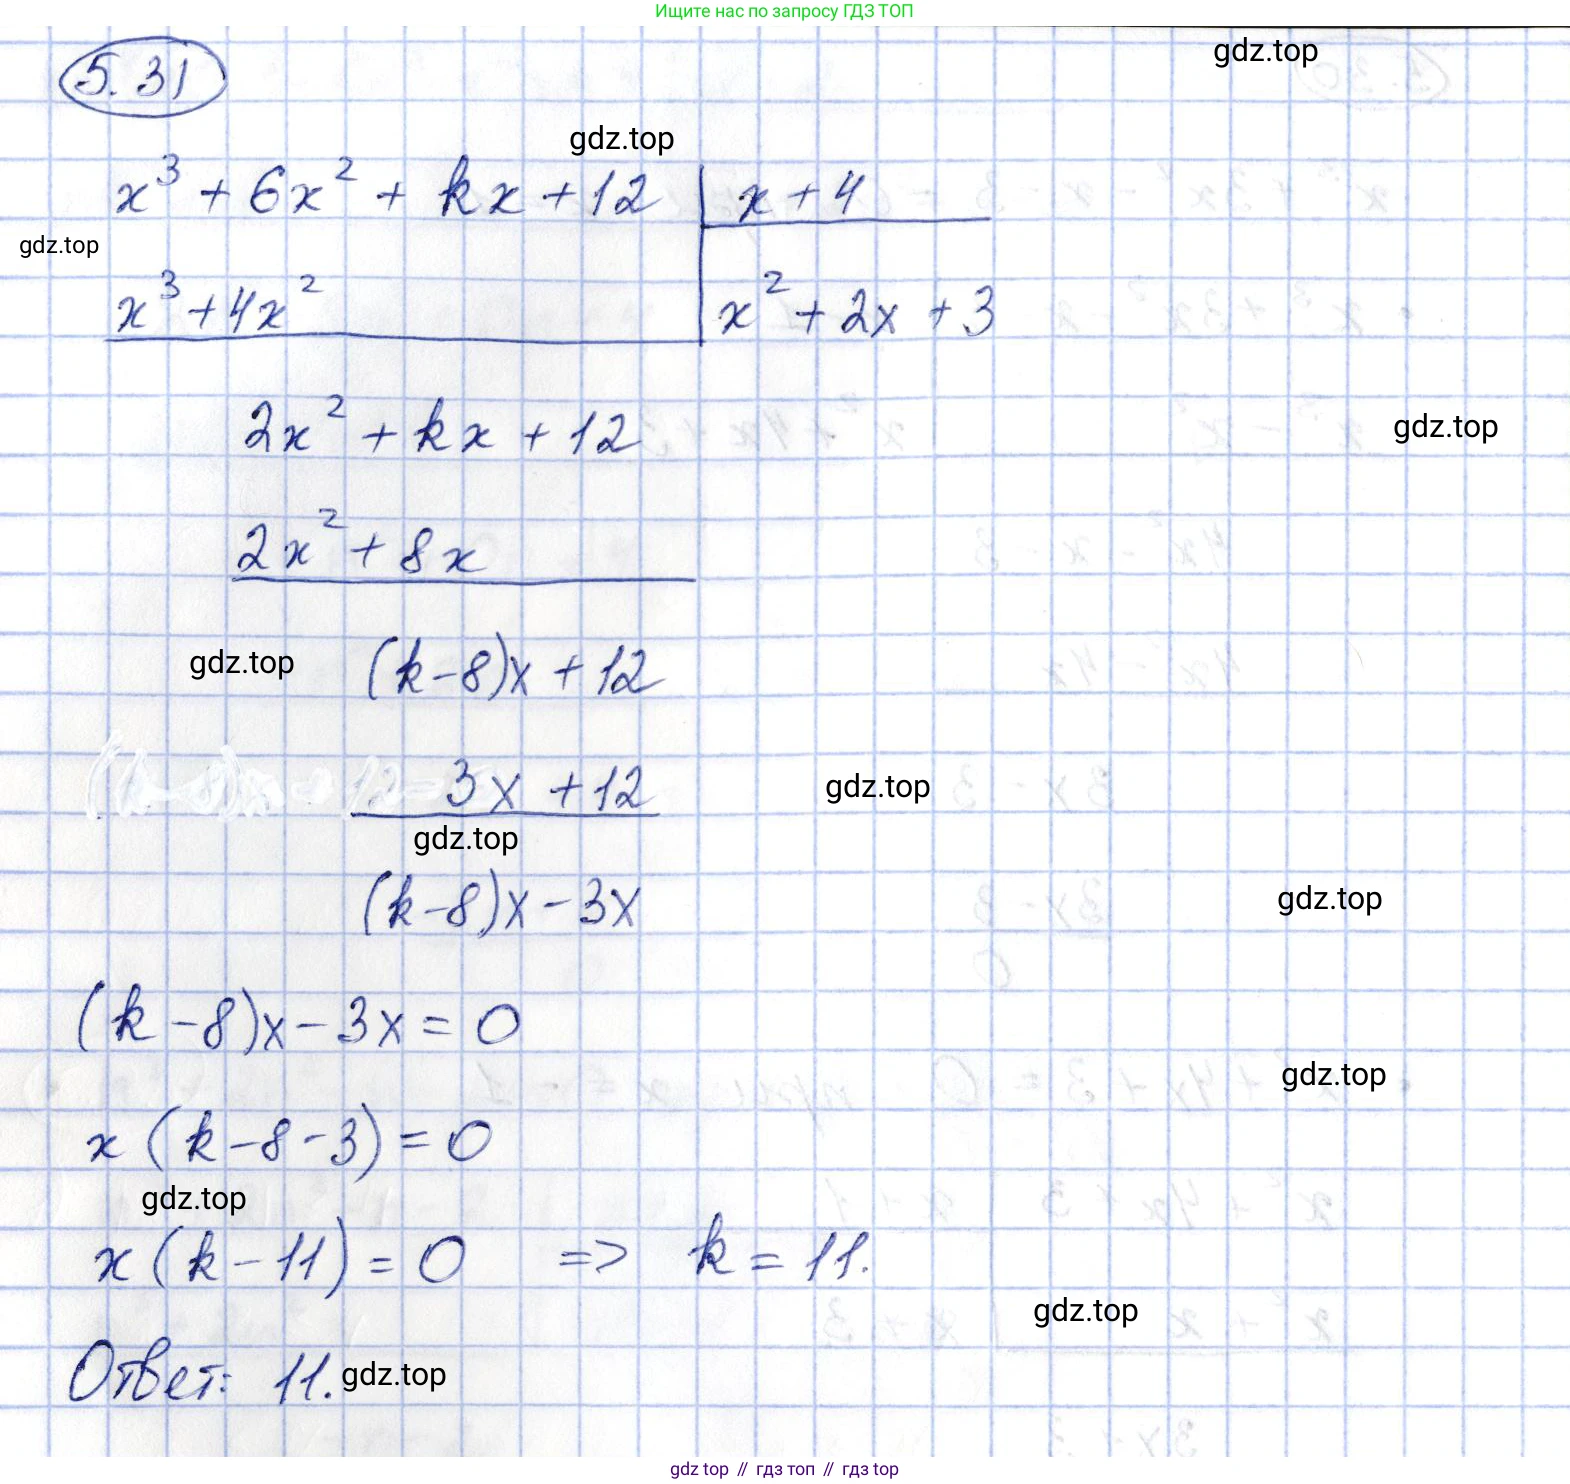 Ищите нас по запросу ГДЗ ТОП
5.31
gdz.top
gdz.top
x³ + 6x² + kx + 12 | x + 4
gdz.top
x³ + 4x² | x² + 2x + 3
2x² + kx + 12
gdz.top
2x² + 8x
gdz.top
(k-8)x + 12
3x + 12
gdz.top
gdz.top
(k-8)x - 3x
gdz.top
(k-8)x - 3x = 0
gdz.top
x(k-8-3) = 0
gdz.top
x(k-11) = 0 => k = 11.
gdz.top
Ответ: 11.
gdz.top
gdz top // гдз топ // гдз top